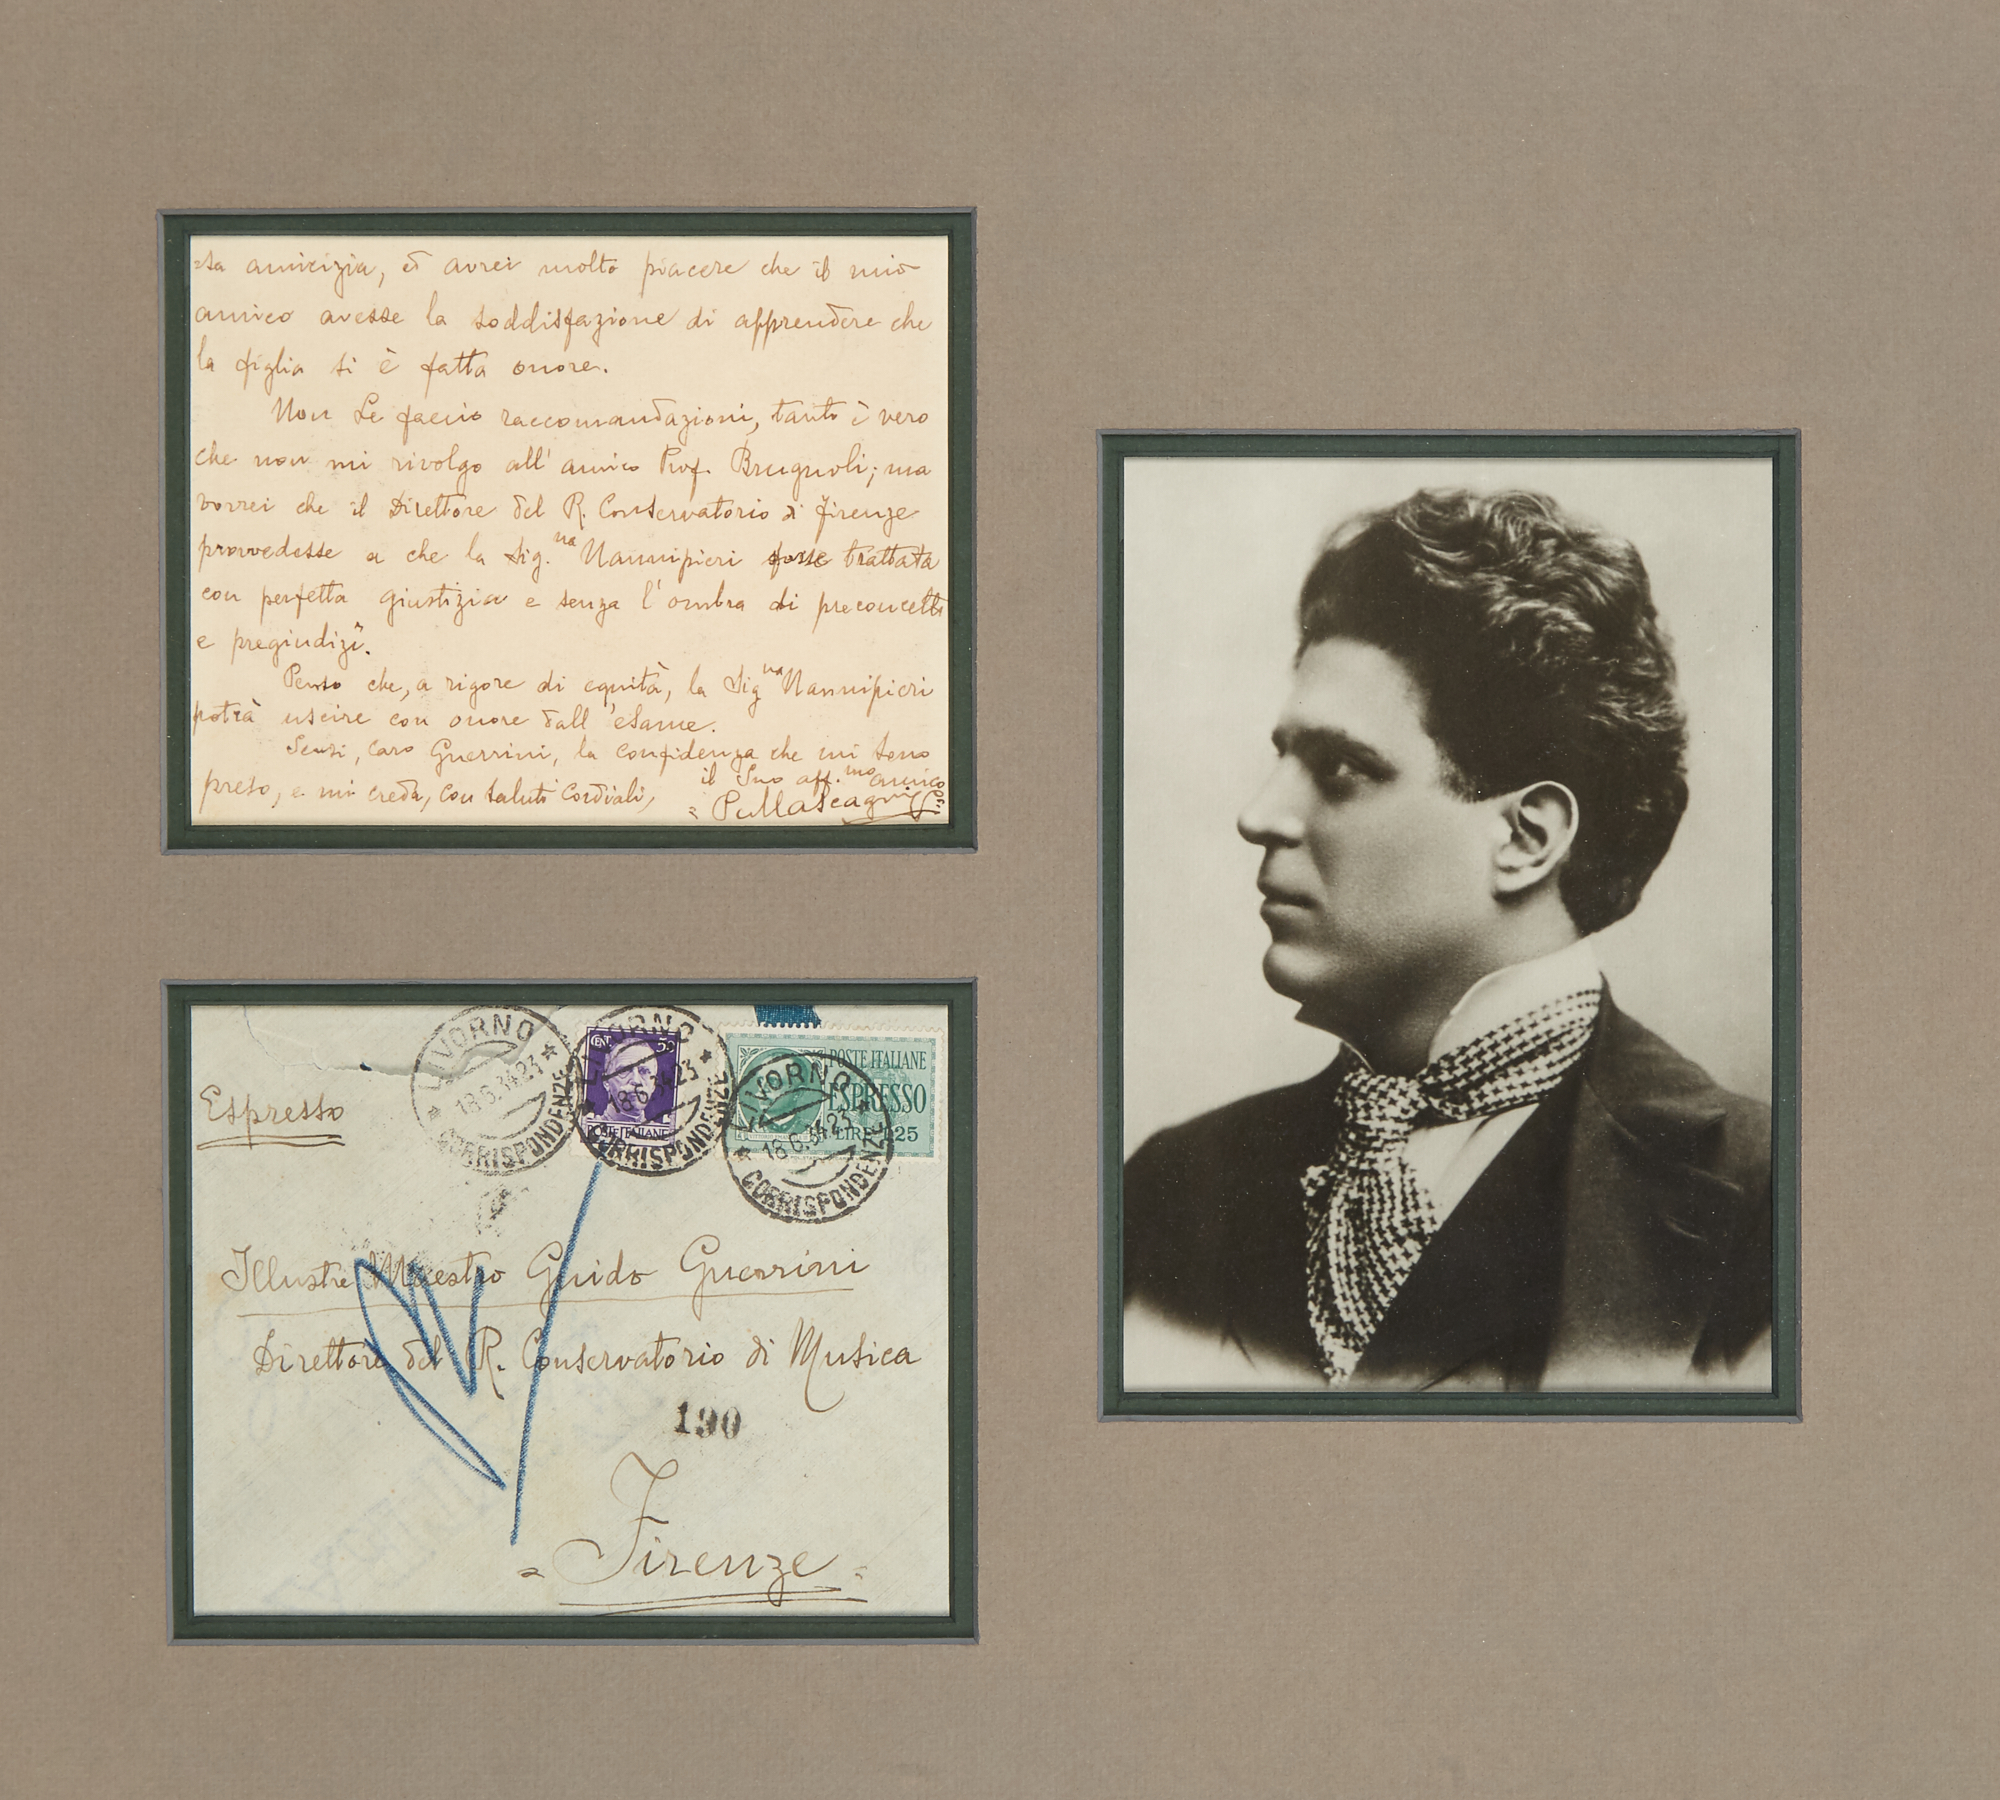 =sta amicizia, ed avrei molto piacere che il mio
amico avesse la soddisfazione di apprendere che
la figlia si è fatta onore.
Non Le faccio raccomandazioni, tanto è vero
che non mi rivolgo all'amico Prof. Brugnoli; ma
vorrei che il Direttore del R. Conservatorio di Firenze
provvedesse a che la Sig.na Nannipieri fosse trattata
con perfetta giustizia e senza l'ombra di preconcetti
e pregiudizî.
Penso che, a rigore di equità, la Signa Nannipieri
potrà uscire con onore dall'esame.
Scusi, caro Guerrini, la confidenza che mi sono
preso, e mi creda, con saluti cordiali,
il Suo aff.mo amico
= P. Mascagni
LIVORNO
18.6.34.23
CORRISPONDENZE
LIVORNO
18.6.34.23
CORRISPONDENZE
CENT. 50
POSTE ITALIANE
LIVORNO
18.6.34.23
CORRISPONDENZE
POSTE ITALIANE
ESPRESSO
LIRE 1,25
Espresso
Illustre Maestro Guido Guerrini
Direttore del R. Conservatorio di Musica
190
= Firenze =